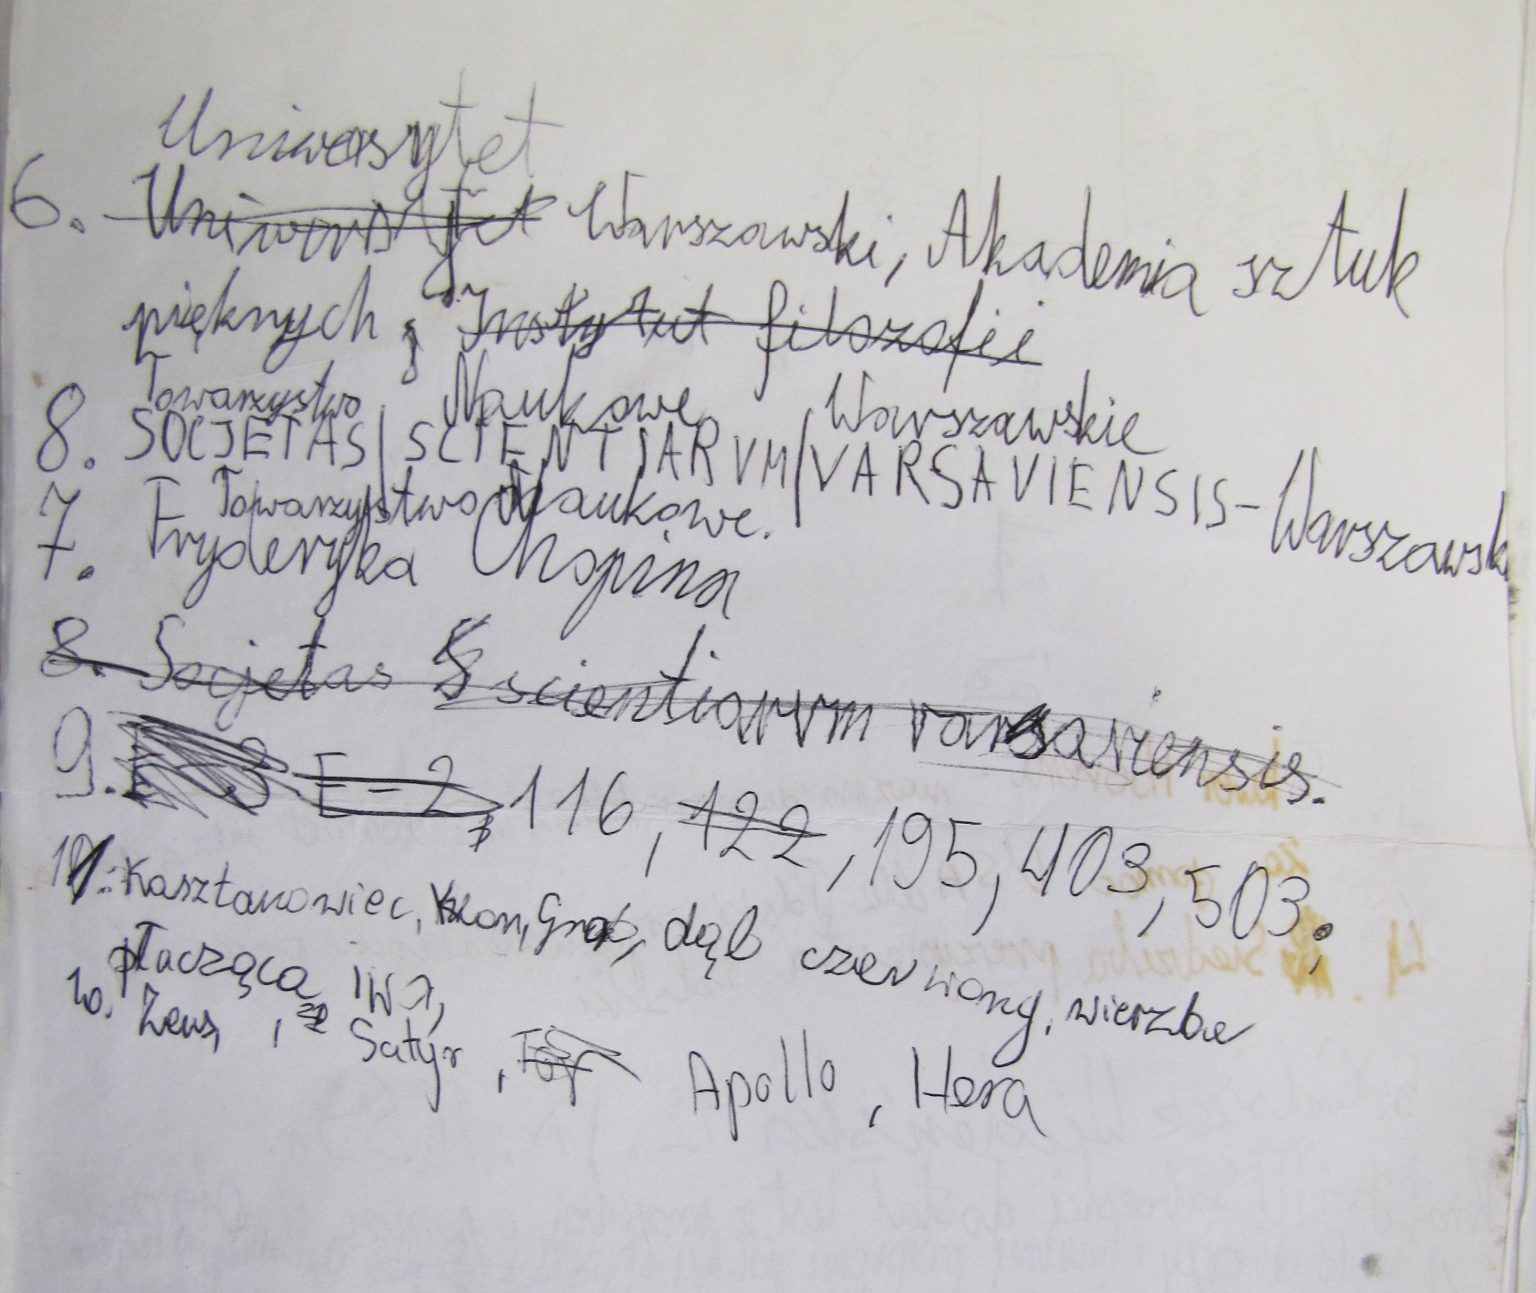 Uniwersytet
6. Uniwersytet Warszawski, Akademia sztuk
pięknych, Instytut filozofii
Towarzystwo Naukowe Warszawskie
8. SOCJETAS/SCIENTJARVM/VARSAVIENSIS-Warszawsk
Towarzystwo Naukowe.
7. Fryderyka Chopina
8. Socjetas scientiarvm varsaviensis.
9. E-2, 116, 122, 195, 403, 503.
10. Kasztanowiec, klon, Grab, dąb czerwony, wierzba
płacząca, iwa,
10. Zeus, Satyr, Apollo, Hera